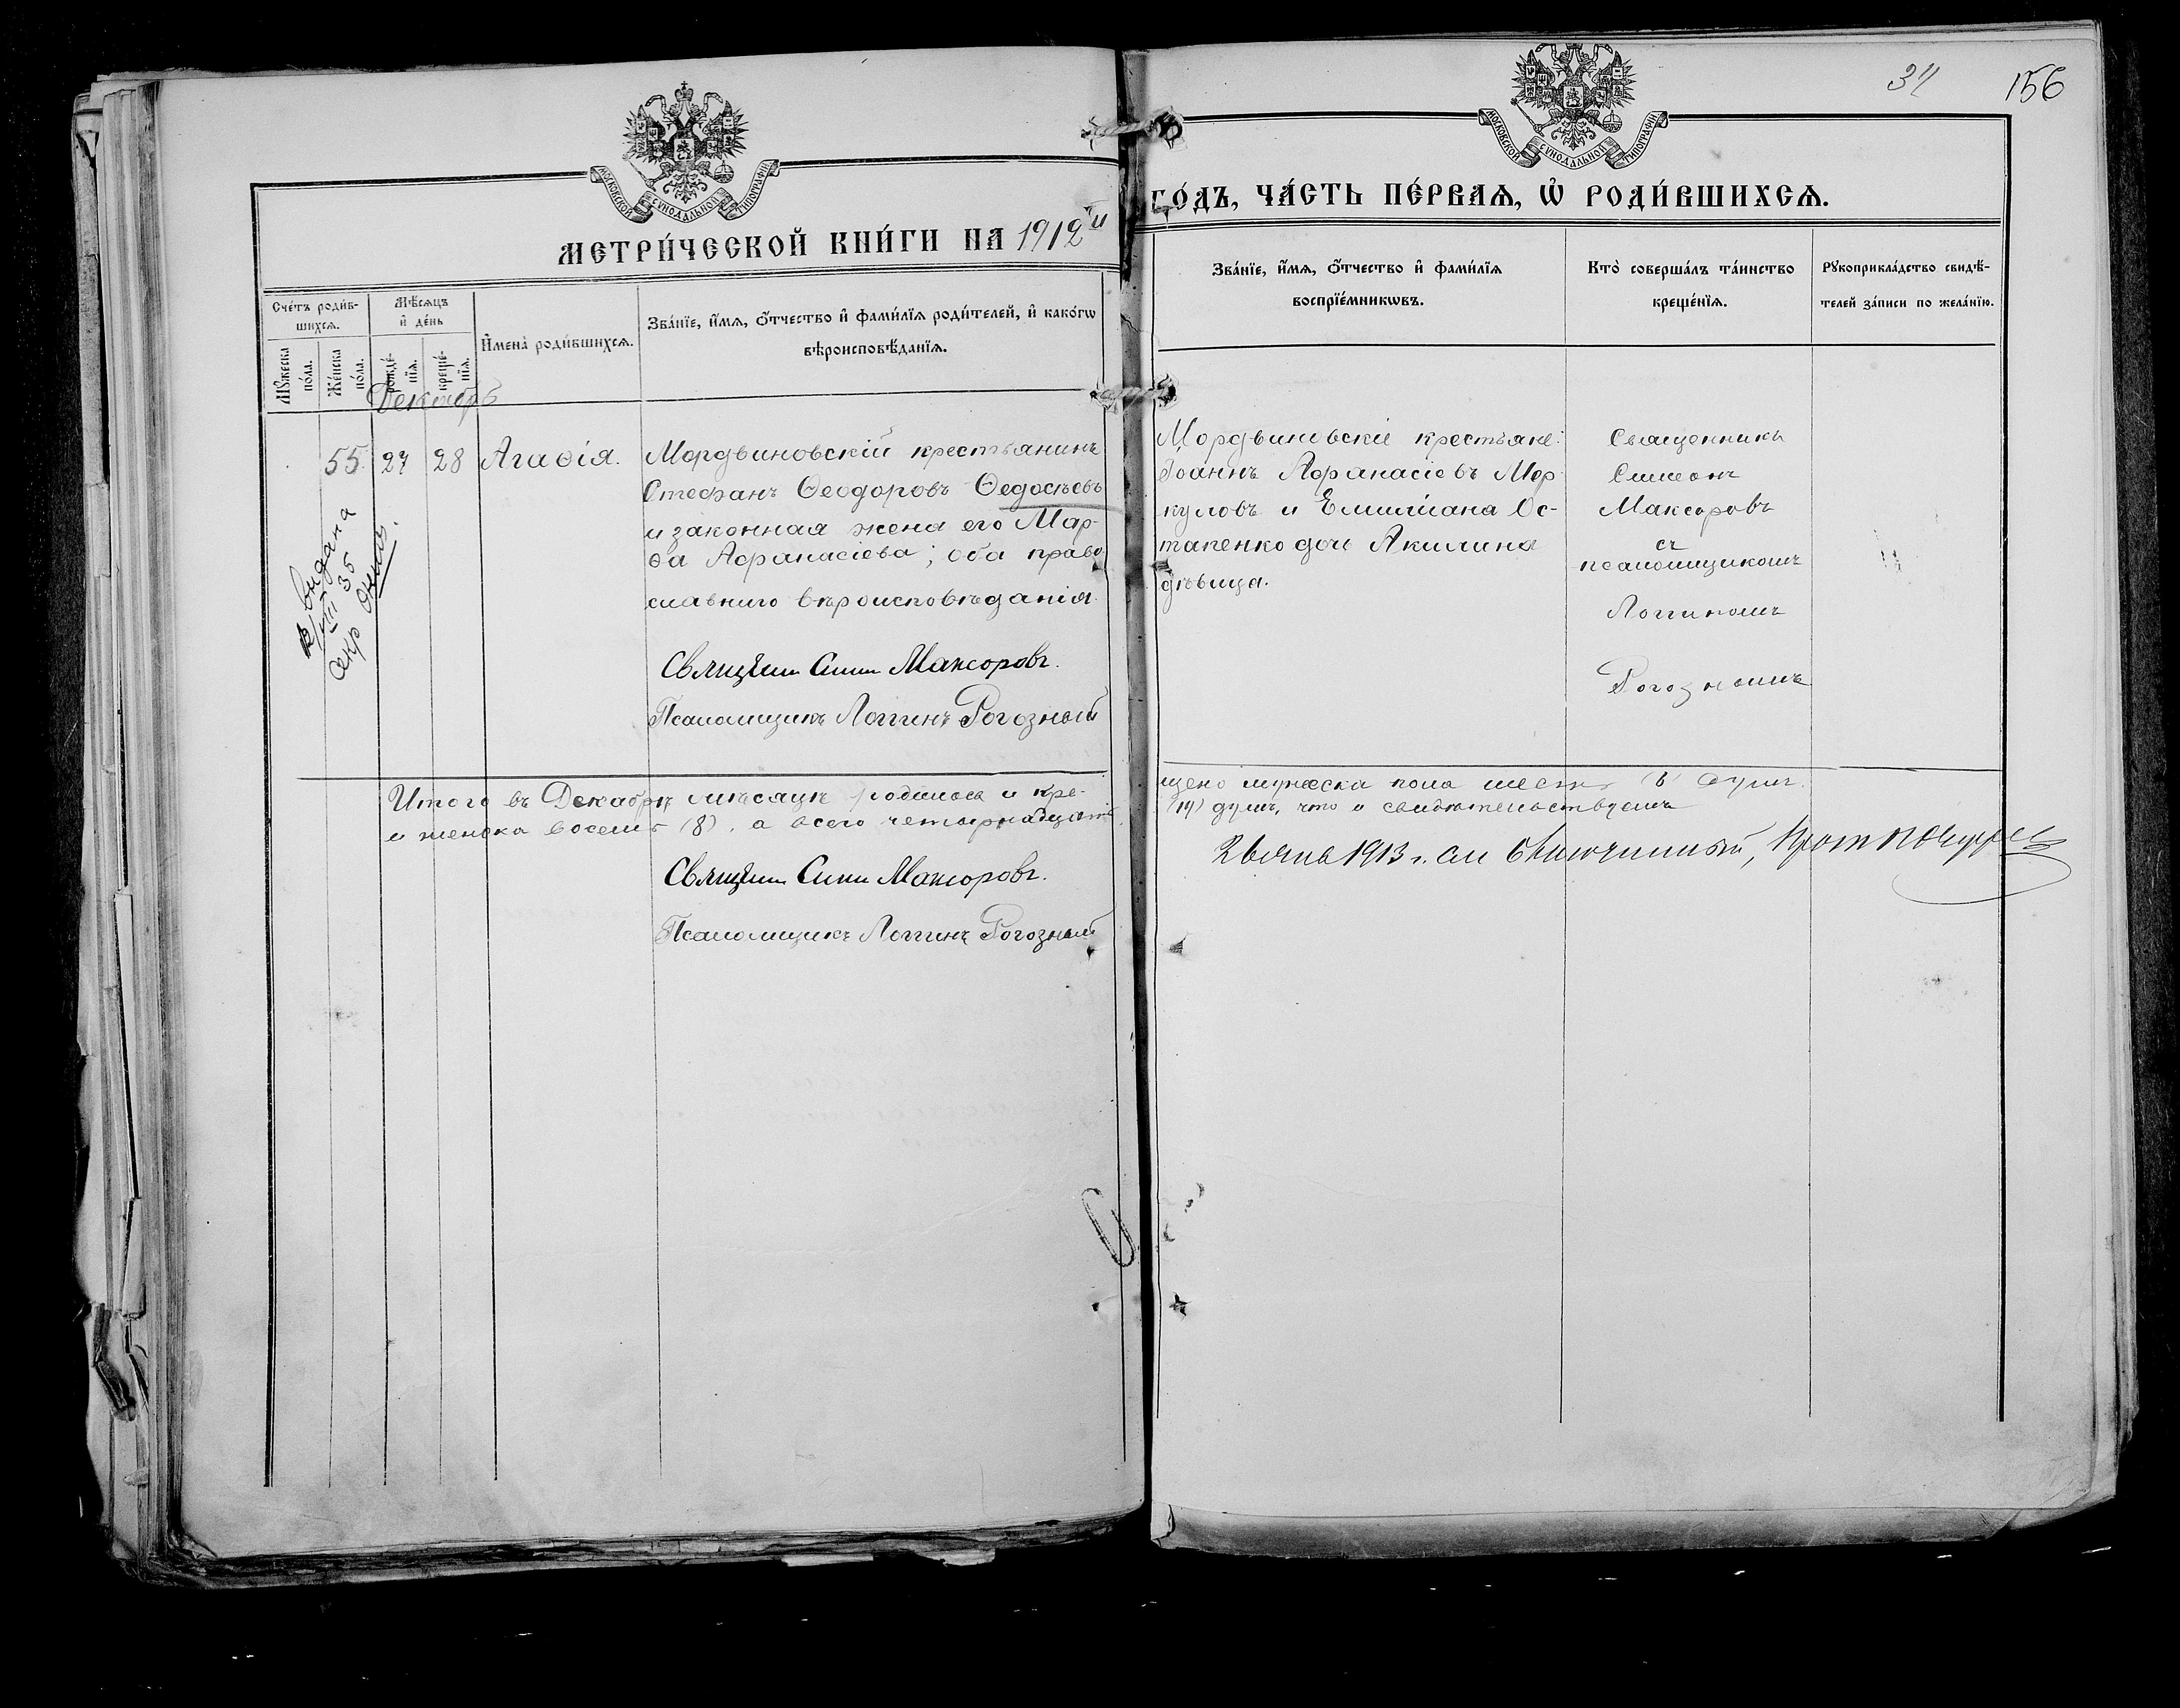 34 156
МОСКОВСКОЙ СѴНОДАЛЬНОЙ ТИПОГРАФІИ
МОСКОВСКОЙ СѴНОДАЛЬНОЙ ТИПОГРАФІИ
МЕТРИ́ЧЕСКОЙ КНИ́ГИ НА 1912й
ГО́ДЪ, ЧА́СТЬ ПЕ́РВАѦ, Ѽ РОДИ́ВШИХСѦ.
Сче́тъ роди́в-
шихсѧ.
Мꙋ́жеска по́ла.
Же́нска по́ла.
Мѣ́сѧцъ
и҆ де́нь
рожде́-
нїѧ.
креще́-
нїѧ.
И҆мена̀ роди́вшихсѧ.
Зва́нїе, и҆́мѧ, ѻ҆́тчество и҆ фами́лїѧ роди́телей, и҆ како́гѡ
вѣроисповѣ́данїѧ.
Зва́нїе, и҆́мѧ, ѻ҆́тчество и҆ фами́лїѧ
воспрїе́мникѡвъ.
Кто̀ соверша́лъ та́инство
креще́нїѧ.
Рꙋкоприкла́дство свидѣ́-
телей за́писи по жела́нїю.
Декабрь
55 27 28 Агаѳія.
Мордвиновскій крестьянинъ
Стефанъ Ѳеодоровъ Ѳедосѣевъ
и законная жена его Мар-
ѳа Афанасіева; оба право
славнаго вѣроисповѣданія.
Священ Симе Максоровъ.
Псаломщикъ Логгинъ Рогозный
выдана
35
Мордвиновскіе крестьяне:
Іоаннъ Афанасіевъ Мер
куловъ и Емилліана Ос-
тапенко дочь Акилина
дѣвица.
Священникъ
Симеонъ
Максоровъ
съ
псаломщикомъ
Логгиномъ
Рогознымъ
Итого въ Декабрѣ мѣсяцѣ родилось и кре-
щено мужеска пола шесть (6) душъ
и женска восемь (8), а всего четырнадцать
(14) душъ, что и свидѣтельствуемъ
Священ Симе Максоровъ.
Псаломщикъ Логгинъ Рогозный
1913 г. Благочинный, Прот